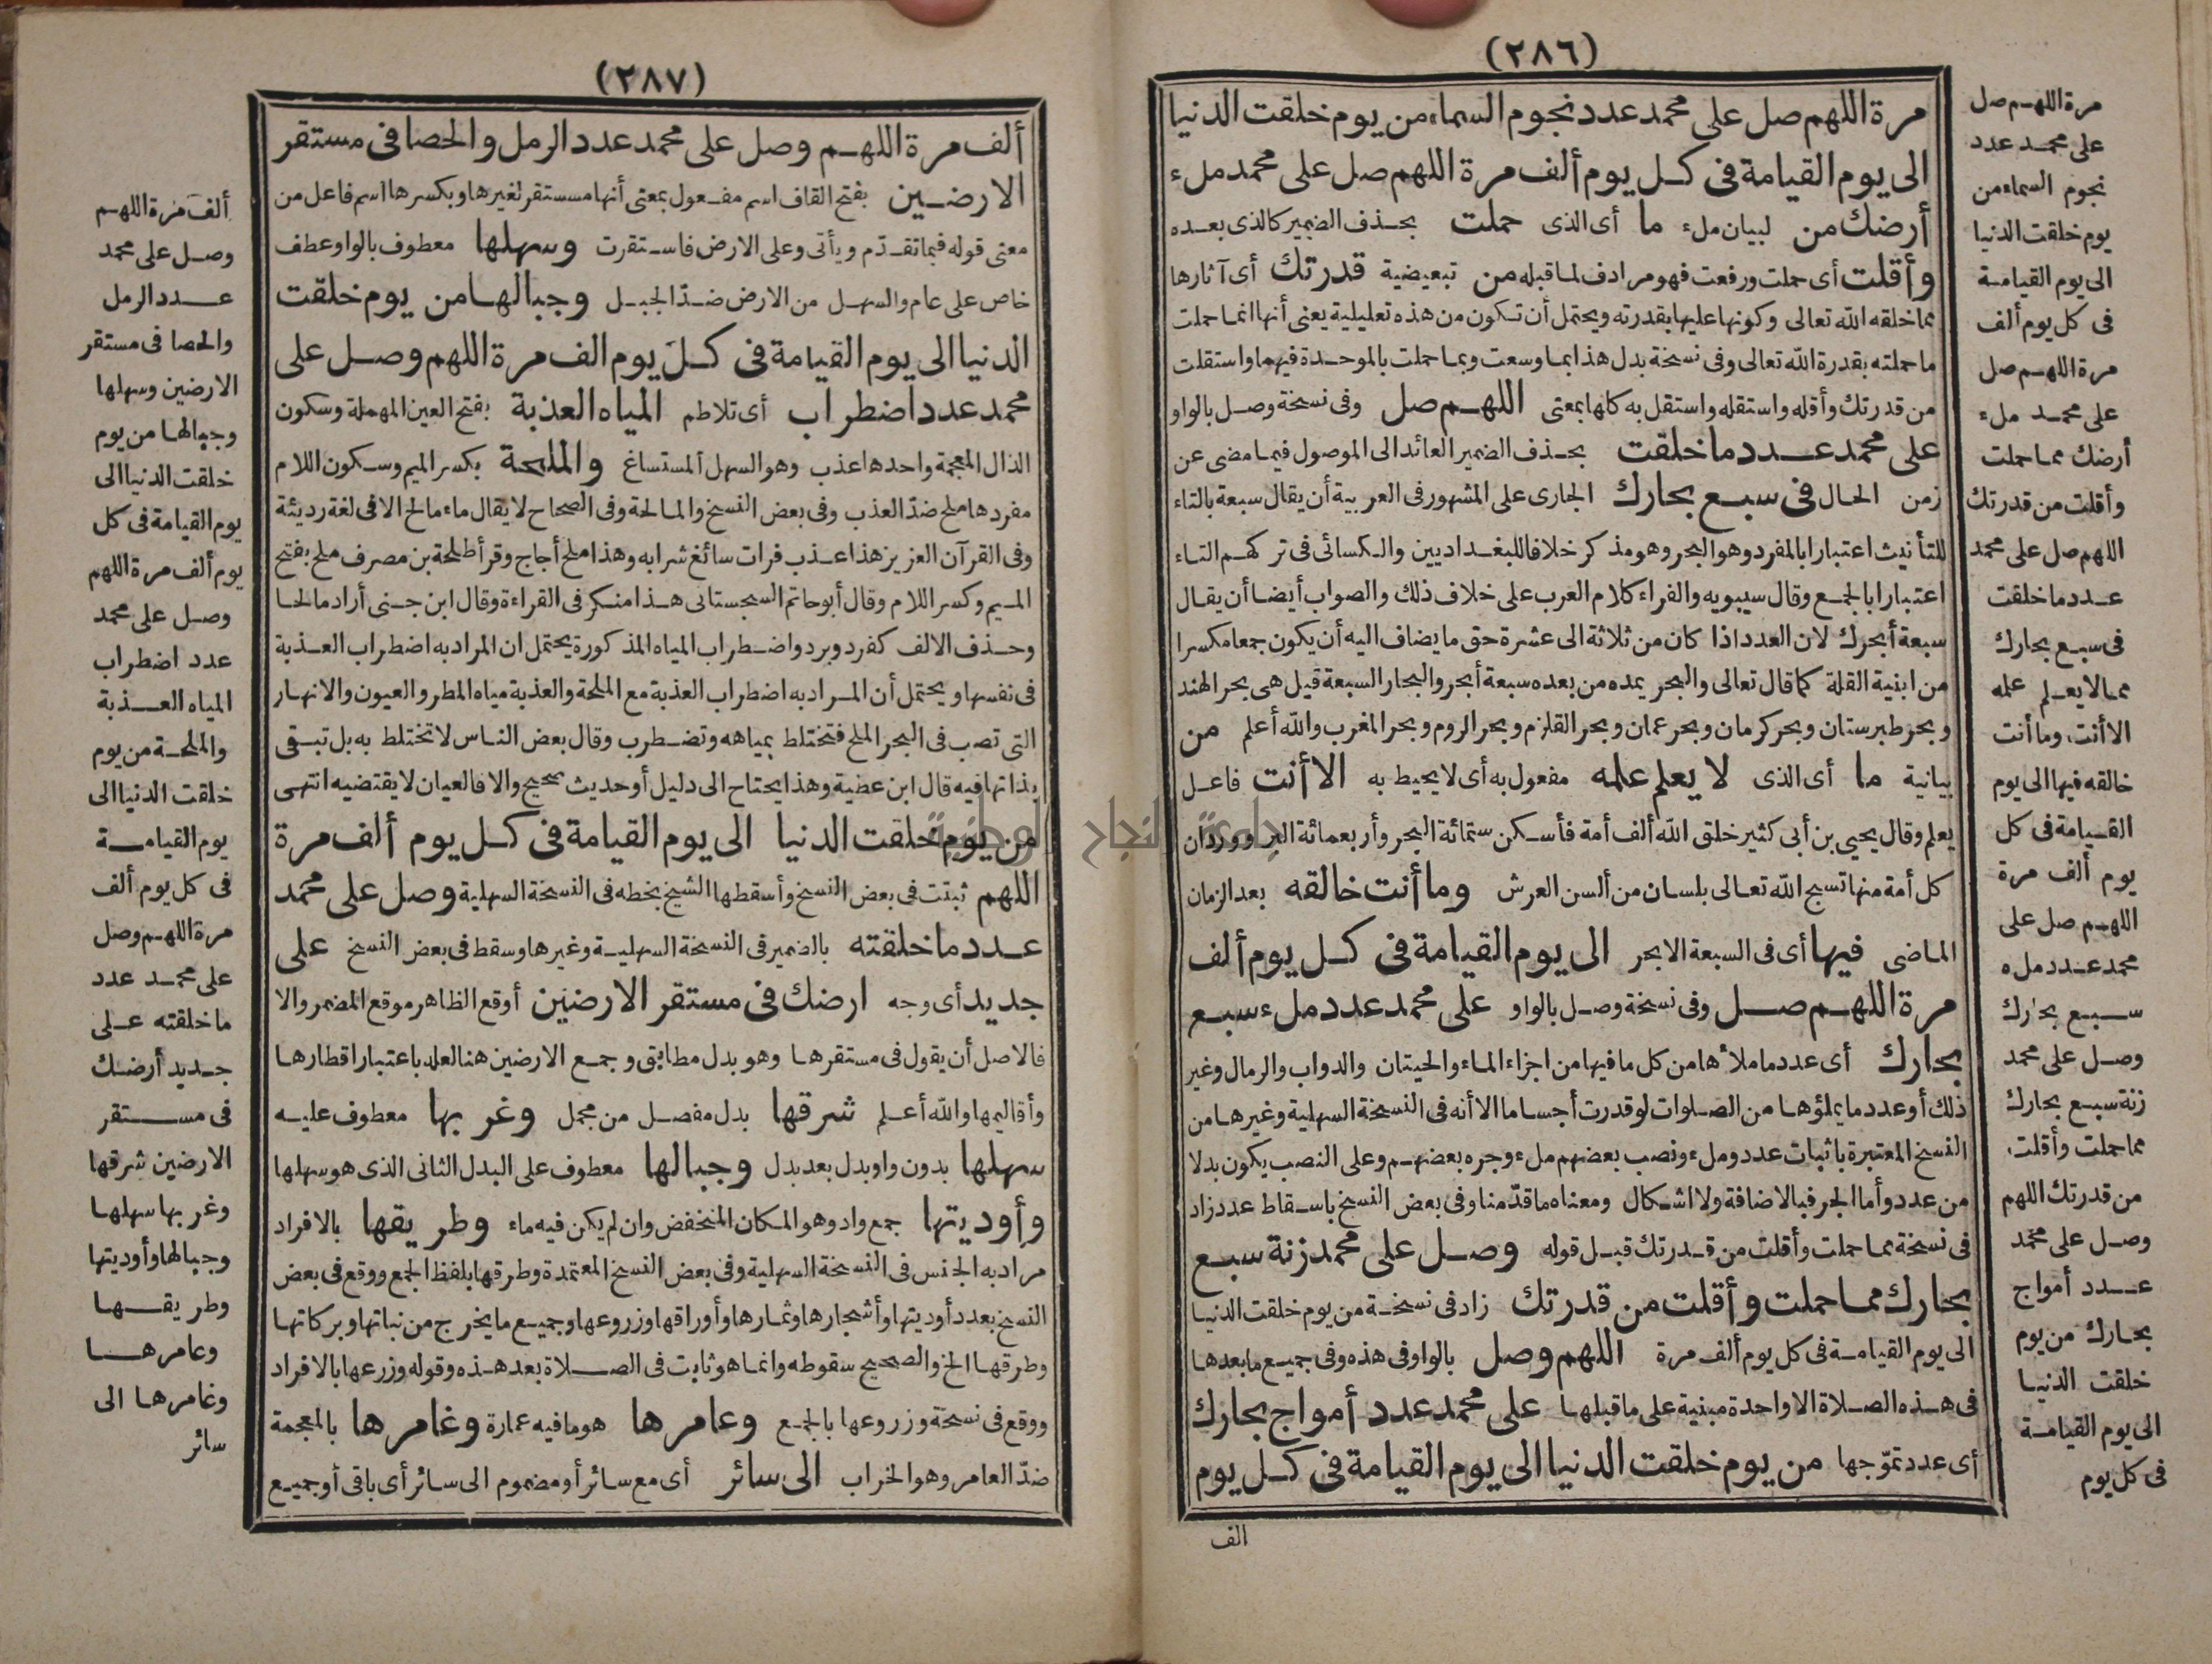 (٢٨٦)
مرة اللهم صل على محمد عدد نجوم السماء من يوم خلقت الدنيا
الى يوم القيامة فى كل يوم ألف مرة اللهم صل على محمد ملء
أرضك من لبيان ملء ما أى الذى حملت بحذف الضمير كالذى بعده
وأقلت أى حملت ورفعت فهو مرادف لما قبله من تبعيضية قدرتك أى آثارها
مما خلقه الله تعالى وكونها عليها بقدرته ويحتمل أن تكون من هذه تعليلية يعنى أنها انما حملت
ما حملته بقدرة الله تعالى وفى نسخة بدل هذا بما وسعت وبما حملت بالموحدة فيهما واستقلت
من قدرتك وأقله واستقله واستقل به كلها بمعنى اللهم صل وفى نسخة وصل بالواو
على محمد عدد ما خلقت بحذف الضمير العائد الى الموصول فيما مضى عن
زمن الحال فى سبع بحارك الجارى على المشهور فى العربية أن يقال سبعة بالتاء
للتأنيث اعتبارا بالمفرد وهو البحر وهو مذكر خلافا للبغداديين والكسائى فى تركهم التاء
اعتبارا بالجمع وقال سيبويه والفراء كلام العرب على خلاف ذلك والصواب أيضا أن يقال
سبعة أبحرك لان العدد اذا كان من ثلاثة الى عشرة حق ما يضاف اليه أن يكون جمعا مكسرا
من ابنية القلة كما قال تعالى والبحر يمده من بعده سبعة أبحر والبحار السبعة قيل هى بحر الهند
وبحر طبرستان وبحر كرمان وبحر عمان وبحر القلزم وبحر الروم وبحر المغرب والله أعلم من
بيانية ما أى الذى لا يعلم علمه مفعول به أى لا يحيط به الا أنت فاعل
يعلم وقال يحيى بن أبى كثير خلق الله ألف أمة فأسكن ستمائة البحر وأربعمائة البر ووردان
كل أمة منها تسبح الله تعالى بلسان من ألسن العرش وما أنت خالقه بعد الزمان
الماضى فيها أى فى السبعة الابحر الى يوم القيامة فى كل يوم ألف
مرة اللهم صل وفى نسخة وصل بالواو على محمد عدد ملء سبع
بحارك أى عدد ما ملأها من كل ما فيها من اجزاء الماء والحيتان والدواب والرمال وغير
ذلك أو عدد ما يملؤها من الصلوات لو قدرت أجساما الا أنه فى النسخة السهلية وغيرها من
النسخ المعتبرة باثبات عدد وملء ونصب بعضهم ملء وجره بعضهم وعلى النصب يكون بدلا
من عدد وأما الجر فبالاضافة ولا اشكال ومعناه ما قدّمنا وفى بعض النسخ باسقاط عدد زاد
فى نسخة مما حملت وأقلت من قدرتك قبل قوله وصل على محمد زنة سبع
بحارك مما حملت وأقلت من قدرتك زاد فى نسخة من يوم خلقت الدنيا
الى يوم القيامة فى كل يوم ألف مرة اللهم وصل بالواو فى هذه وفى جميع ما بعدها
فى هذه الصلاة الا واحدة مبنية على ما قبلها على محمد عدد أمواج بحارك
أى عدد تموّجها من يوم خلقت الدنيا الى يوم القيامة فى كل يوم
الف
مرة اللهم صل
على محمد عدد
نجوم السماء من
يوم خلقت الدنيا
الى يوم القيامة
فى كل يوم ألف
مرة اللهم صل
على محمد ملء
أرضك مما حملت
وأقلت من قدرتك
اللهم صل على محمد
عدد ما خلقت
فى سبع بحارك
مما لا يعلم علمه
الا أنت وما أنت
خالقه فيها الى يوم
القيامة فى كل
يوم ألف مرة
اللهم صل على
محمد عدد ملء
سبع بحارك
وصل على محمد
زنة سبع بحارك
مما حملت وأقلت
من قدرتك اللهم
وصل على محمد
عدد أمواج
بحارك من يوم
خلقت الدنيا
الى يوم القيامة
فى كل يوم
(٢٨٧)
ألف مرة اللهم وصل على محمد عدد الرمل والحصا فى مستقر
الارضين بفتح القاف اسم مفعول بمعنى أنها مستقر لغيرها وبكسرها اسم فاعل من
معنى قوله فيما تقدّم ويأتى وعلى الارض فاستقرت وسهلها معطوف بالواو عطف
خاص على عام والسهل من الارض ضدّ الجبل وجبالها من يوم خلقت
الدنيا الى يوم القيامة فى كل يوم الف مرة اللهم وصل على
محمد عدد اضطراب أى تلاطم المياه العذبة بفتح العين المهملة وسكون
الذال المعجمة واحدها عذب وهو السهل المستساغ والملحة بكسر الميم وسكون اللام
مفردها ملح ضدّ العذب وفى بعض النسخ والمالحة وفى الصحاح لا يقال ماء مالح الا فى لغة رديئة
وفى القرآن العزيز هذا عذب فرات سائغ شرابه وهذا ملح أجاج وقرأ طلحة بن مصرف ملح بفتح
الميم وكسر اللام وقال أبو حاتم السجستانى هذا منكر فى القراءة وقال ابن جنى أراد مالحا
وحذف الالف كفرد وبرد واضطراب المياه المذكورة يحتمل ان المراد به اضطراب العذبة
فى نفسها ويحتمل أن المراد به اضطراب العذبة مع الملحة والعذبة مياه المطر والعيون والانهار
التى تصب فى البحر الملح فتختلط بمياهه وتضطرب وقال بعض الناس لا تختلط به بل تبقى
بذاتها فيه قال ابن عطية وهذا يحتاج الى دليل أو حديث صحيح والا فالعيان لا يقتضيه انتهى
من يوم خلقت الدنيا الى يوم القيامة فى كل يوم ألف مرة
اللهم ثبتت فى بعض النسخ وأسقطها الشيخ بخطه فى النسخة السهلية وصل على محمد
عدد ما خلقته بالضمير فى النسخة السهلية وغيرها وسقط فى بعض النسخ على
جديد أى وجه ارضك فى مستقر الارضين أوقع الظاهر موقع المضمر والا
فالاصل أن يقول فى مستقرها وهو بدل مطابق وجمع الارضين هنا لعله باعتبار اقطارها
وأقاليمها والله أعلم شرقها بدل مفصل من مجمل وغربها معطوف عليه
سهلها بدون واو بدل بعد بدل وجبالها معطوف على البدل الثانى الذى هو سهلها
وأوديتها جمع واد وهو المكان المنخفض وان لم يكن فيه ماء وطريقها بالافراد
مراد به الجنس فى النسخة السهلية وفى بعض النسخ المعتمدة وطرقها بلفظ الجمع ووقع فى بعض
النسخ بعد أوديتها وأشجارها وثمارها وأوراقها وزروعها وجميع ما يخرج من نباتها وبركاتها
وطرقها الخ والصحيح سقوطه وانما هو ثابت فى الصلاة بعد هذه وقوله وزرعها بالافراد
ووقع فى نسخة وزروعها بالجمع وعامرها هو ما فيه عمارة وغامرها بالمعجمة
ضدّ العامر وهو الخراب الى سائر أى مع سائر أو مضموم الى سائر أى باقى أو جميع
ألف مرة اللهم
وصل على محمد
عدد الرمل
والحصا فى مستقر
الارضين وسهلها
وجبالها من يوم
خلقت الدنيا الى
يوم القيامة فى كل
يوم ألف مرة اللهم
وصل على محمد
عدد اضطراب
المياه العذبة
والملحة من يوم
خلقت الدنيا الى
يوم القيامة
فى كل يوم ألف
مرة اللهم وصل
على محمد عدد
ما خلقته على
جديد أرضك
فى مستقر
الارضين شرقها
وغربها سهلها
وجبالها وأوديتها
وطريقها
وعامرها
وغامرها الى
سائر
جامعة النجاح الوطنية